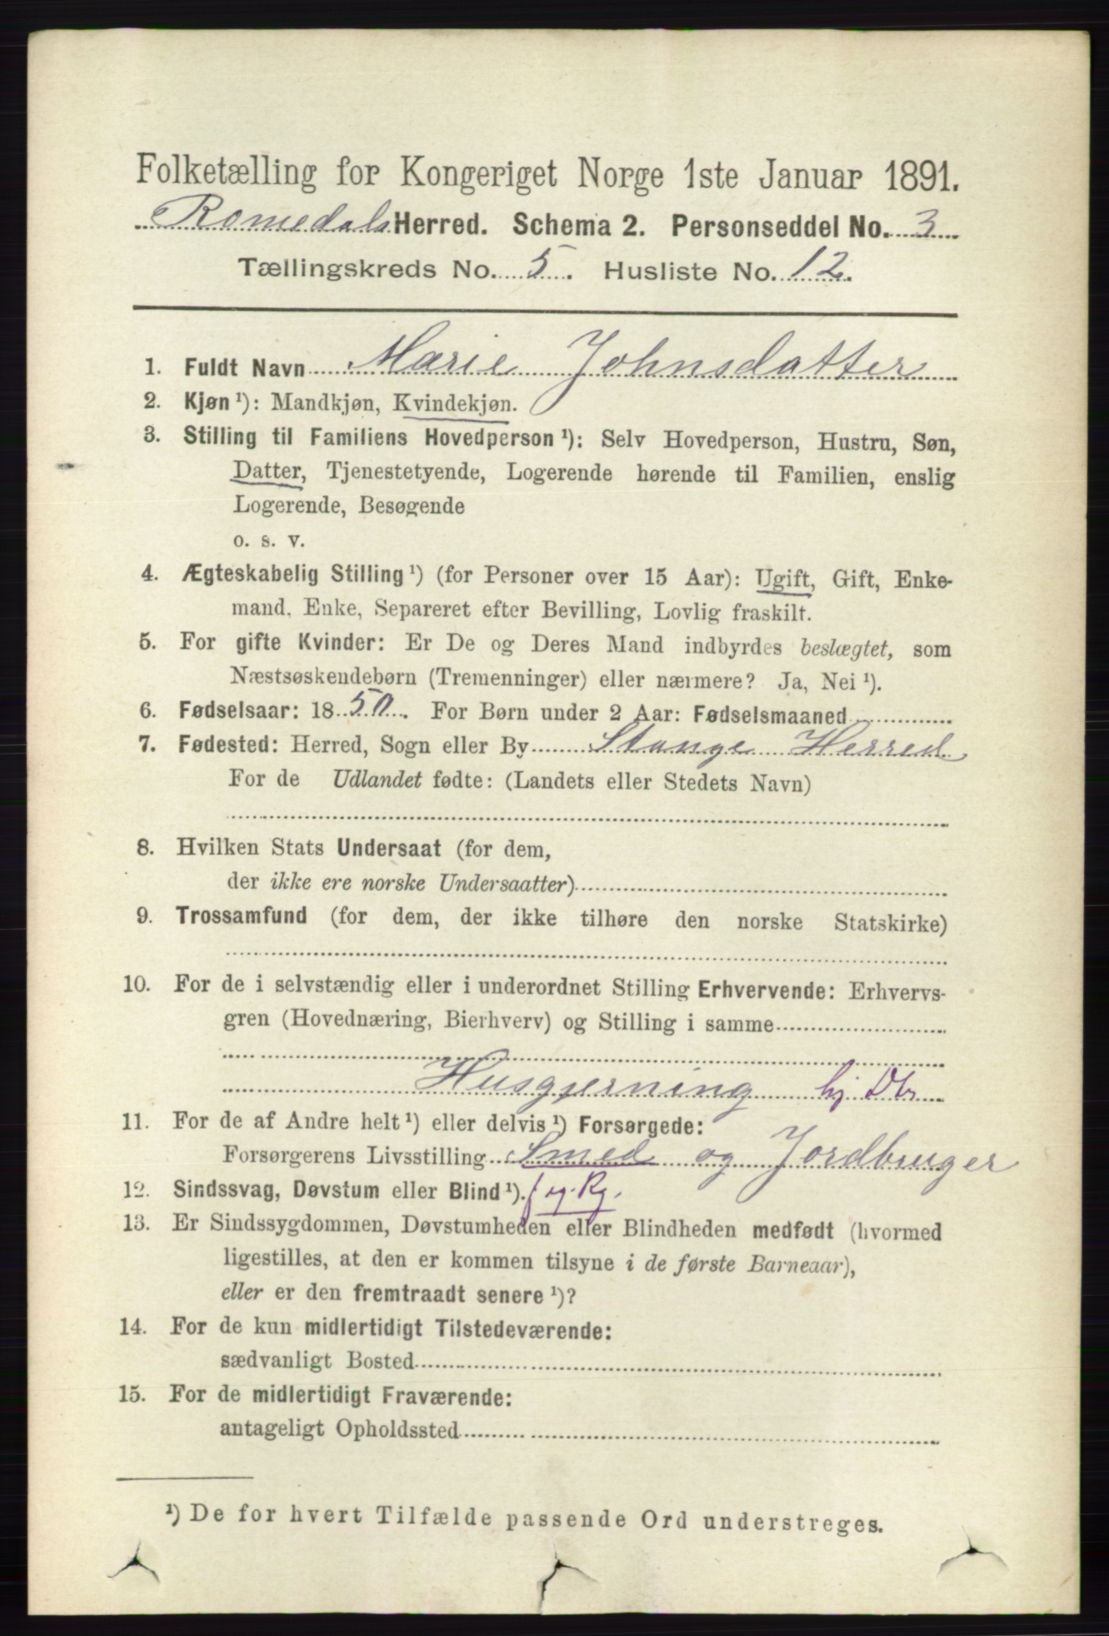 Folketælling for Kongeriget Norge 1ste Januar 1891.
Romedals Herred. Schema 2. Personseddel No. 3
Tællingskreds No. 5. Husliste No. 12.
1. Fuldt Navn Marie Johnsdatter
2. Kjøn ¹): Mandkjøn, Kvindekjøn.
3. Stilling til Familiens Hovedperson ¹): Selv Hovedperson, Hustru, Søn,
Datter, Tjenestetyende, Logerende hørende til Familien, enslig
Logerende, Besøgende
o. s. v.
4. Ægteskabelig Stilling ¹) (for Personer over 15 Aar): Ugift, Gift, Enke-
mand, Enke, Separeret efter Bevilling, Lovlig fraskilt.
5. For gifte Kvinder: Er De og Deres Mand indbyrdes beslægtet, som
Næstsøskendebørn (Tremenninger) eller nærmere? Ja, Nei ¹).
6. Fødselsaar: 1850. For Børn under 2 Aar: Fødselsmaaned
7. Fødested: Herred, Sogn eller By Stange Herred
For de Udlandet fødte: (Landets eller Stedets Navn)
8. Hvilken Stats Undersaat (for dem,
der ikke ere norske Undersaatter)
9. Trossamfund (for dem, der ikke tilhøre den norske Statskirke)
10. For de i selvstændig eller i underordnet Stilling Erhvervende: Erhvervs-
gren (Hovednæring, Bierhverv) og Stilling i samme
Husgjerning hj Dtr
11. For de af Andre helt ¹) eller delvis ¹) Forsørgede:
Forsørgerens Livsstilling Smed og Jordbruger
12. Sindssvag, Døvstum eller Blind ¹). f og. Rg.
13. Er Sindssygdommen, Døvstumheden eller Blindheden medfødt (hvormed
ligestilles, at den er kommen tilsyne i de første Barneaar),
eller er den fremtraadt senere ¹)?
14. For de kun midlertidigt Tilstedeværende:
sædvanligt Bosted
15. For de midlertidigt Fraværende:
antageligt Opholdssted
¹) De for hvert Tilfælde passende Ord understreges.